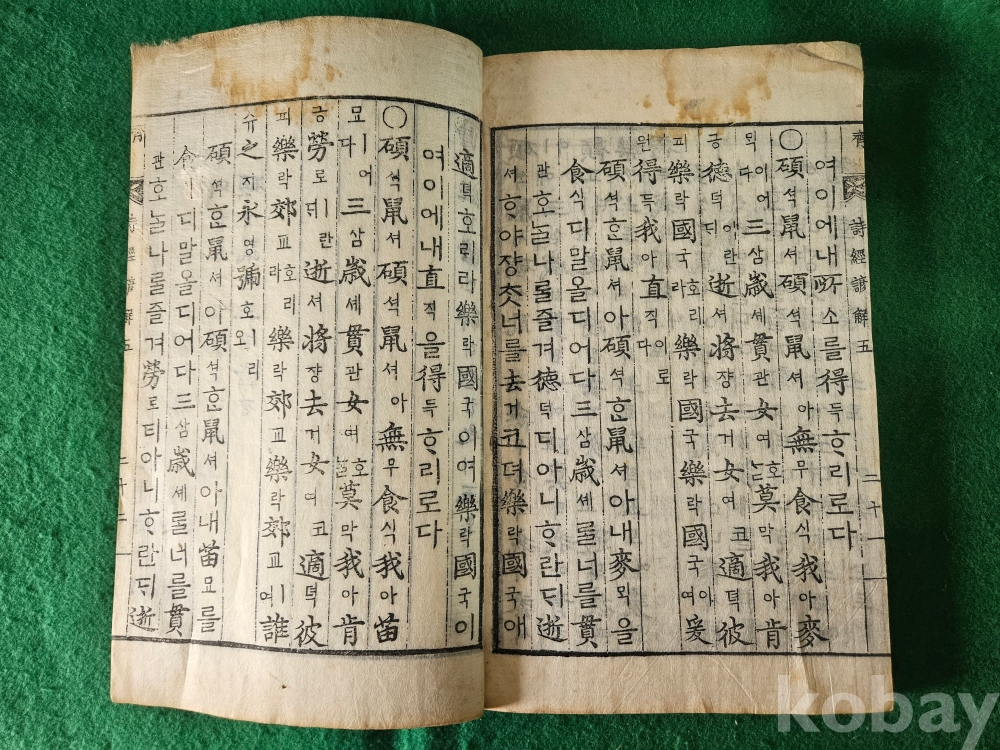 詩經諺解五 二十一
여이에내所소를得득ᄒᆞ리로다
○碩셕鼠셔碩셕鼠셔아無무食식我아麥
ᄆᆡᆨ이어다三삼歲셰貫관女여호ᄂᆞᆯ莫막我아肯
긍德덕디란逝셔將쟝去거女여코適뎍彼
피樂락國국호리라樂락國국樂락國국아여爰
원得득我아直직이로다
碩셕ᄒᆞᆫ鼠셔아碩셕ᄒᆞᆫ鼠셔아내麥ᄆᆡᆨ을
食식디말올디어다三삼歲셰ᄅᆞᆯ너를貫
관호ᄂᆞᆯ나ᄅᆞᆯ즐겨德덕디아니ᄒᆞ란ᄃᆡ逝
셔ᄒᆞ야쟝ᄎᆞᆺ너를去거코뎌樂락國국애
適뎍호리라樂락國국이여樂락國국이
여이에내直직을得득ᄒᆞ리로다
○碩셕鼠셔碩셕鼠셔아無무食식我아苗
묘ㅣ어다三삼歲셰貫관女여호ᄂᆞᆯ莫막我아肯
긍勞로ᄃᆡ란逝셔將쟝去거女여코適뎍彼
피樂락郊교호리라樂락郊교樂락郊교ㅣ여誰
슈之지永영號호ㅣ리오
碩셕ᄒᆞᆫ鼠셔아碩셕ᄒᆞᆫ鼠셔아내苗묘를
食식디말올디어다三삼歲셰ᄅᆞᆯ너를貫
관호ᄂᆞᆯ나ᄅᆞᆯ즐겨勞로티아니ᄒᆞ란ᄃᆡ逝
詩經諺解五
kobay